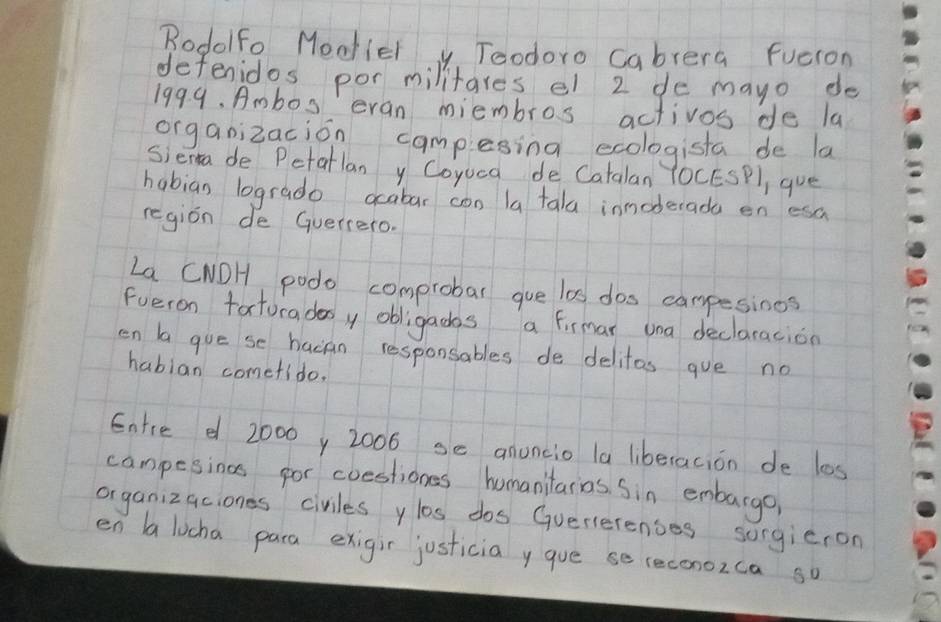 Rodolfo Montiel y Teodoro Cabrera Fueron
detenidos por militares el 2 de mayo de
1999. Ambos eran miembros activos de la
organización campesina ecologista de la
Sierra de Petatlan y Coyuca de Catalan YOCESP1, que
habian logrado acabar con la tala inmoderada en esa
región de Guerrero.

La CNDH podo comprobar que los dos campesinos
Fueron torturados y obligados a firmar una declaración
en la que se hacian responsables de delitos que no
habian cometido.

Entre el 2000 y 2006 se anuncio la liberación de los
campesinos por coestiones humanitarias. Sin embargo,
organizaciones civiles y los dos Guerrerenses surgieron
en la lucha para exigir justicia y que se reconozca su